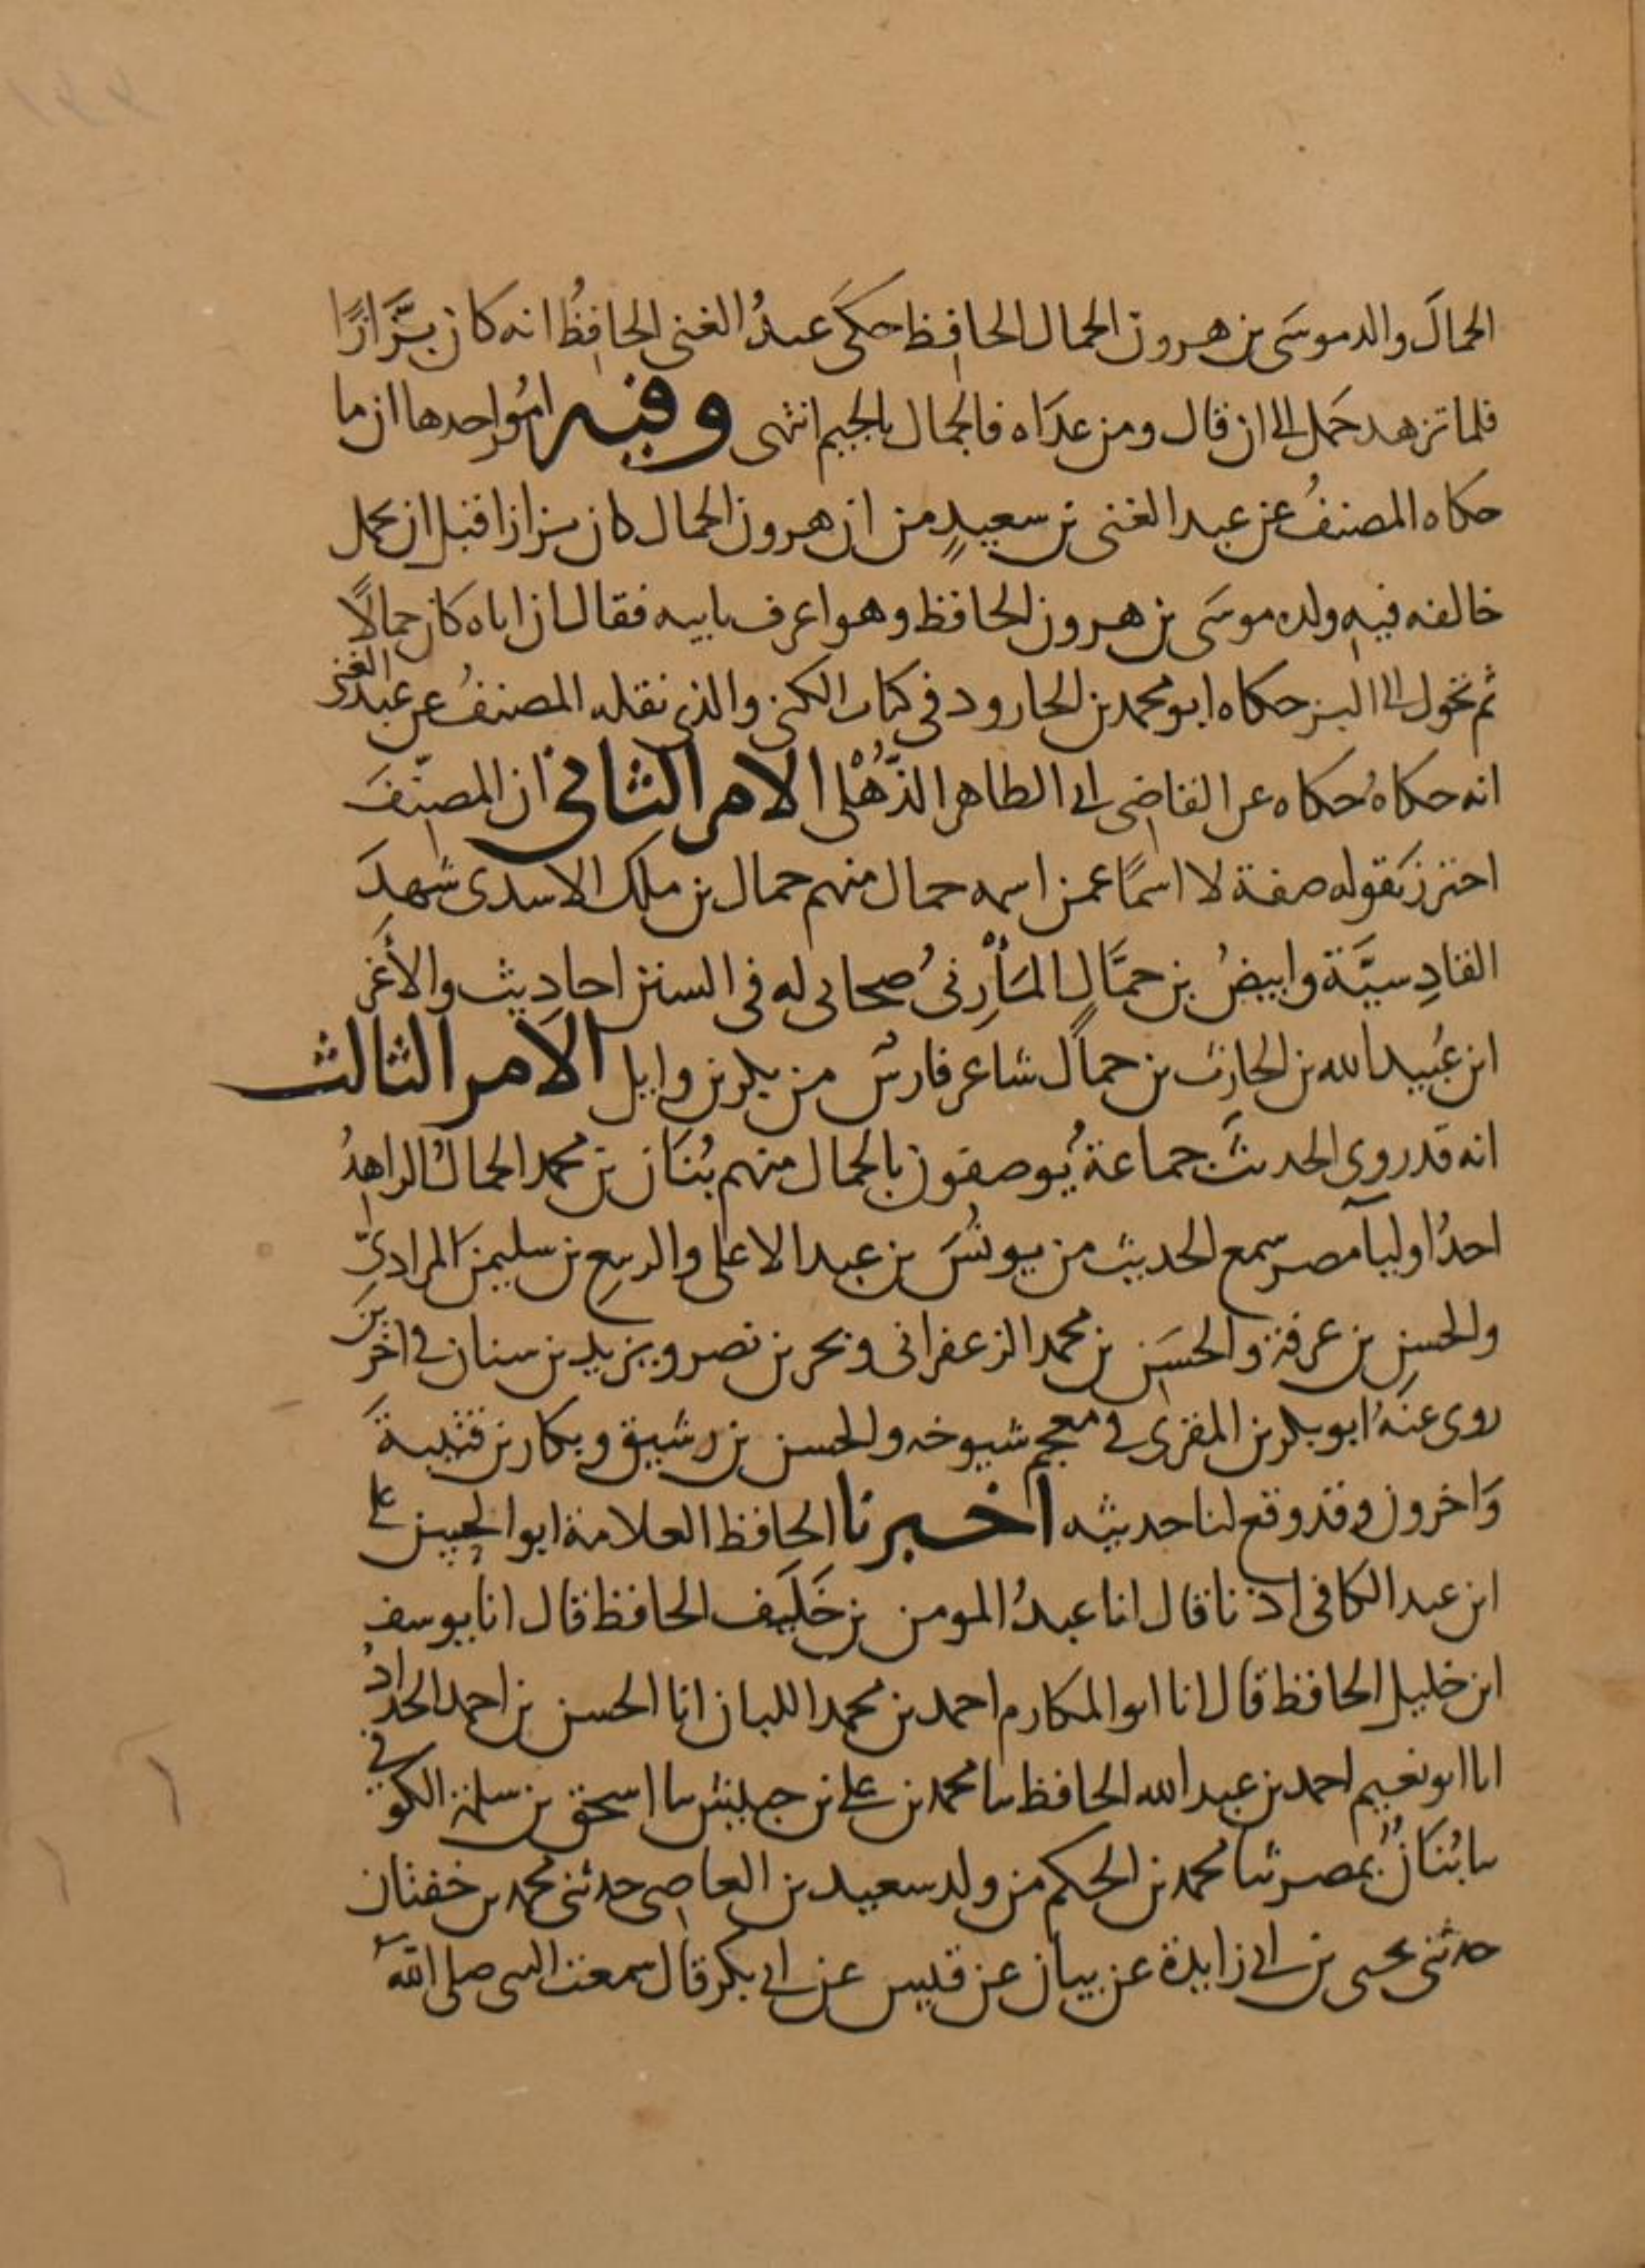 الحمالَ والد موسَى بن هرون الحمال الحافظ حكَى عبدُ الغنى الحافظُ انه كان بزَّازًا
فلما تزهد حَمل الى ان قال ومن عدَاه فالجمال بالجيم انتهى وفيه امُور احدها ان ما
حكاه المصنفُ عن عبد الغنى بن سعيدٍ من ان هرون الحمال كان بزازا قبل ان يحمل
خالفه فيه ولده موسَى بن هرون الحافظ وهو اعرف بابيه فقال ان اباه كان حمالًا
ثم تحول الى البز حكاه ابو محمد بن الجارود فى كتاب الكنى والذى نقله المصنفُ عن عبد الغنى
انه حكاهُ حكاه عن القاضى ابى الطاهر الذُّهْلى الامر الثانى ان المصنّفَ
احترز بقوله صفة لا اسمًا عمن اسمه حمال منهم حمال بن ملك الاسدى شهدَ
القادِسيَّة وابيضُ بن حمَّالٍ المَأْرِبىُ صحابى له فى السنن احاديث والأَغر
ابن عُبيد الله بن الحارث بن حمال شاعر فارس من بكر بن وايل الامر الثالث
انه قد روى الحديثَ جماعةٌ يُوصفون بالحمال منهم بُنَان بن محمد الحمالُ الزاهِدُ
احدُ اوليآ مصر سمع الحديث من يونُسَ بن عبد الاعلى والربيع بن سليمن المرادىِّ
والحسنِ بن عرفة والحسَن بن محمد الزعفرانى وبحر بن نصر ويزيد بن سنان فى اخَرينَ
روى عنهُ ابو بكر بن المقرى فى معجم شيوخه والحسن بن رشيق وبكار بن قتيبةَ
وَاخرون وقد وقع لنا حديثه اخبرنا الحافظ العلامة ابو الحسن على
ابن عبد الكافى اذنا قال انا عبدُ المومن بن خَلَف الحافظ قال انا يوسف
ابن خليل الحافظ قال انا ابو المكارم احمد بن محمد اللبان انا الحسن بن احمد الحدادُ
انا ابو نعيم احمد بن عبد الله الحافظ ثنا محمد بن على بن حبيش ثنا اسحق بن سلمة الكوفى
ثنا بُنَانٌ بمصر ثنا محمد بن الحكم من ولد سعيد بن العاصى حدثنى محمد بن خفتان
حدثنى يحيى بن ابى زايدة عن بيان عن قيس عن ابى بكر قال سمعت النبى صلى الله